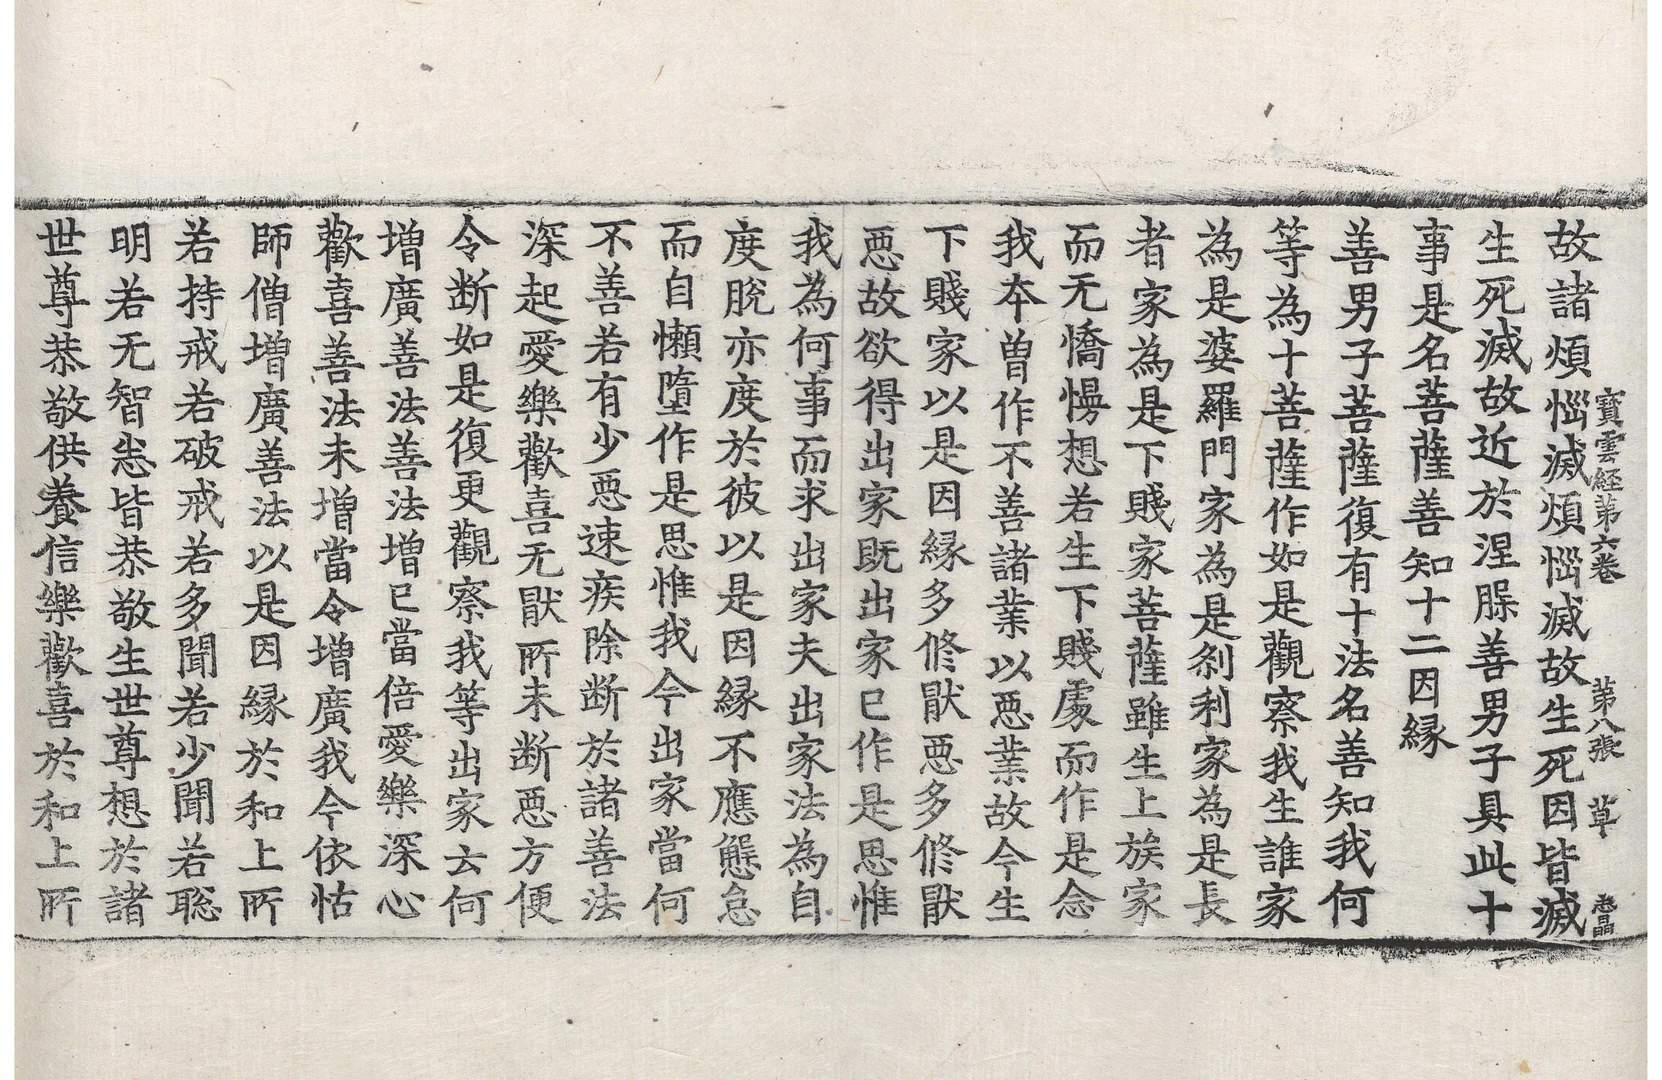 寶雲経第六卷 第八張 草
故諸煩惱滅煩惱滅故生死因皆滅
生死滅故近於涅槃善男子具此十
事是名菩薩善知十二因縁
善男子菩薩復有十法名善知我何
等為十菩薩作如是觀察我生誰家
為是婆羅門家為是刹利家為是長
者家為是下賤家菩薩雖生上族家
而无憍慢想若生下賤處而作是念
我本曽作不善諸業以惡業故今生
下賤家以是因縁多修猒惡多修猒
惡故欲得出家既出家已作是思惟
我為何事而求出家夫出家法為自
度脫亦度於彼以是因縁不應懈怠
而自懶墮作是思惟我今出家當何
不善若有少惡速疾除断於諸善法
深起愛樂歡喜无猒所未断惡方便
令断如是復更觀察我等出家云何
増廣善法善法増已當倍愛樂深心
歡喜善法未増當令増廣我今依怙
師僧増廣善法以是因縁於和上所
若持戒若破戒若多聞若少聞若聡
明若无智悉皆恭敬生世尊想於諸
世尊恭敬供養信樂歡喜於和上所